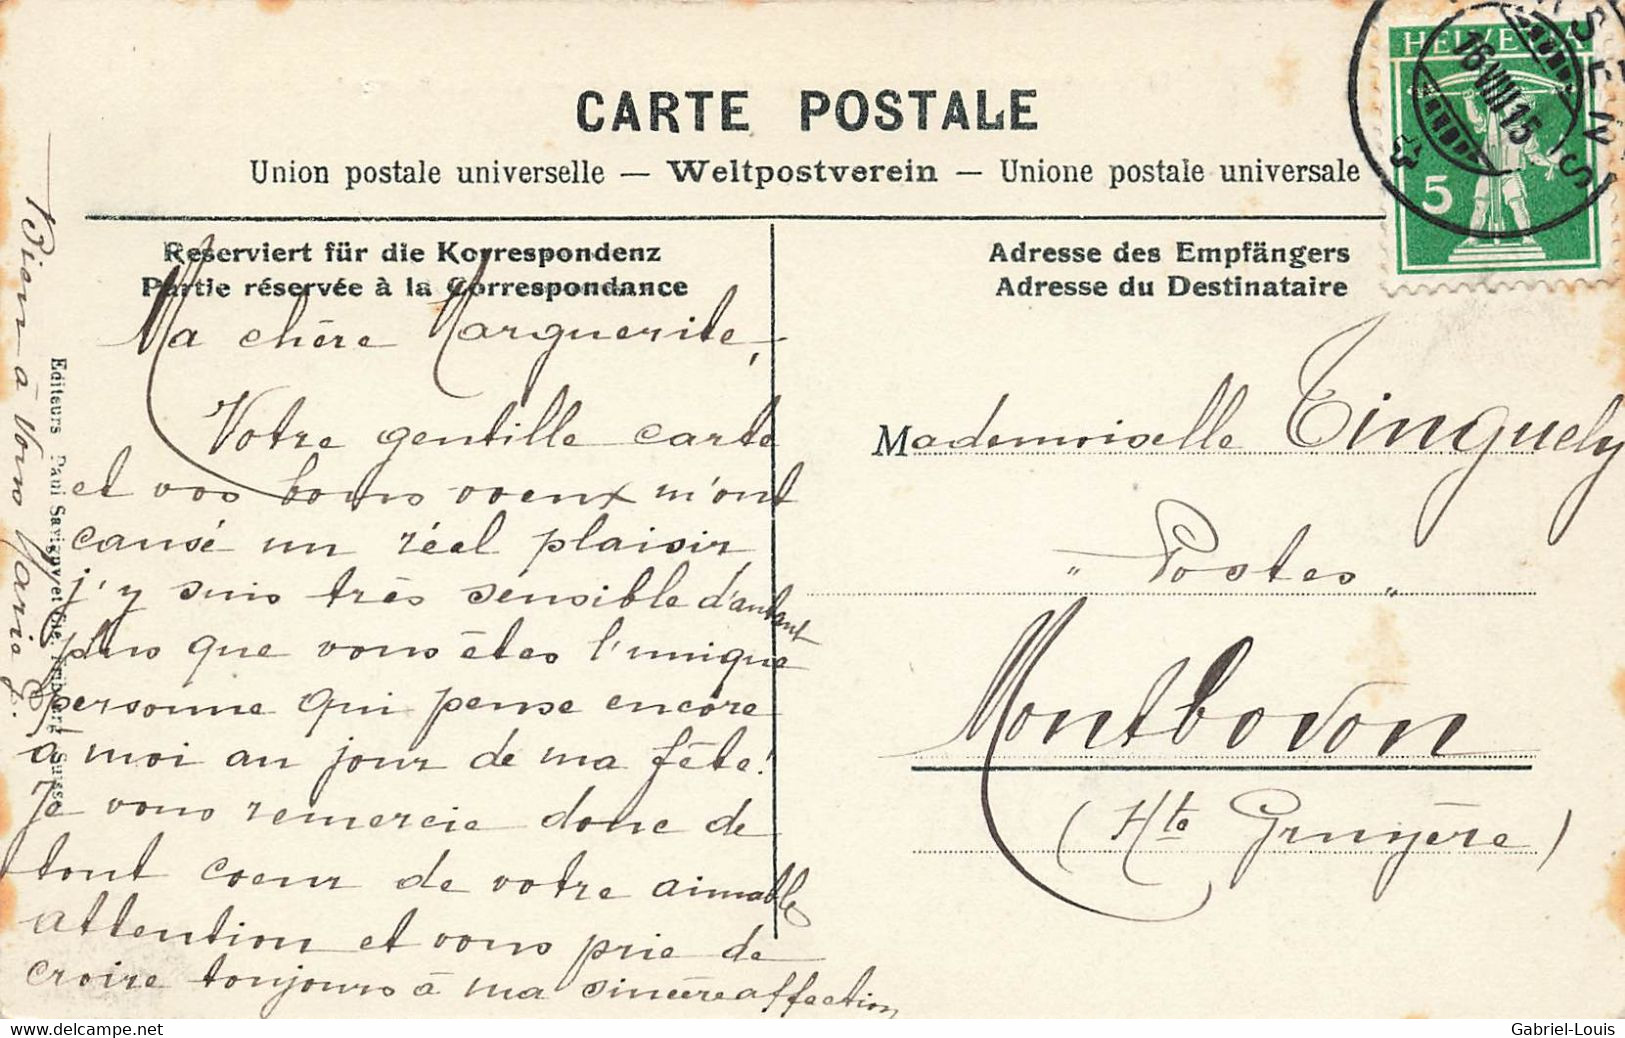 CARTE POSTALE
Union postale universelle — Weltpostverein — Unione postale universale
Reserviert für die Korrespondenz
Partie réservée à la Correspondance
Adresse des Empfängers
Adresse du Destinataire
HELVETIA
5
16.VIII.15
Ma chère Marguerite,
Votre gentille carte
et vos bons voeux m'ont
causé un réel plaisir,
j'y suis très sensible d'autant
plus que vous êtes l'unique
personne qui pense encore
à moi au jour de ma fête!
Je vous remercie donc de
tout coeur de votre aimable
attention et vous prie de
croire toujours à ma sincère affection
Bien à Vous Marie G.
Editeurs Paul Savigny et Cie, Fribourg Suisse
Mademoiselle Tinguely
" Postes "
Montbovon
(Hte Gruyère)
www.delcampe.net
Gabriel-Louis